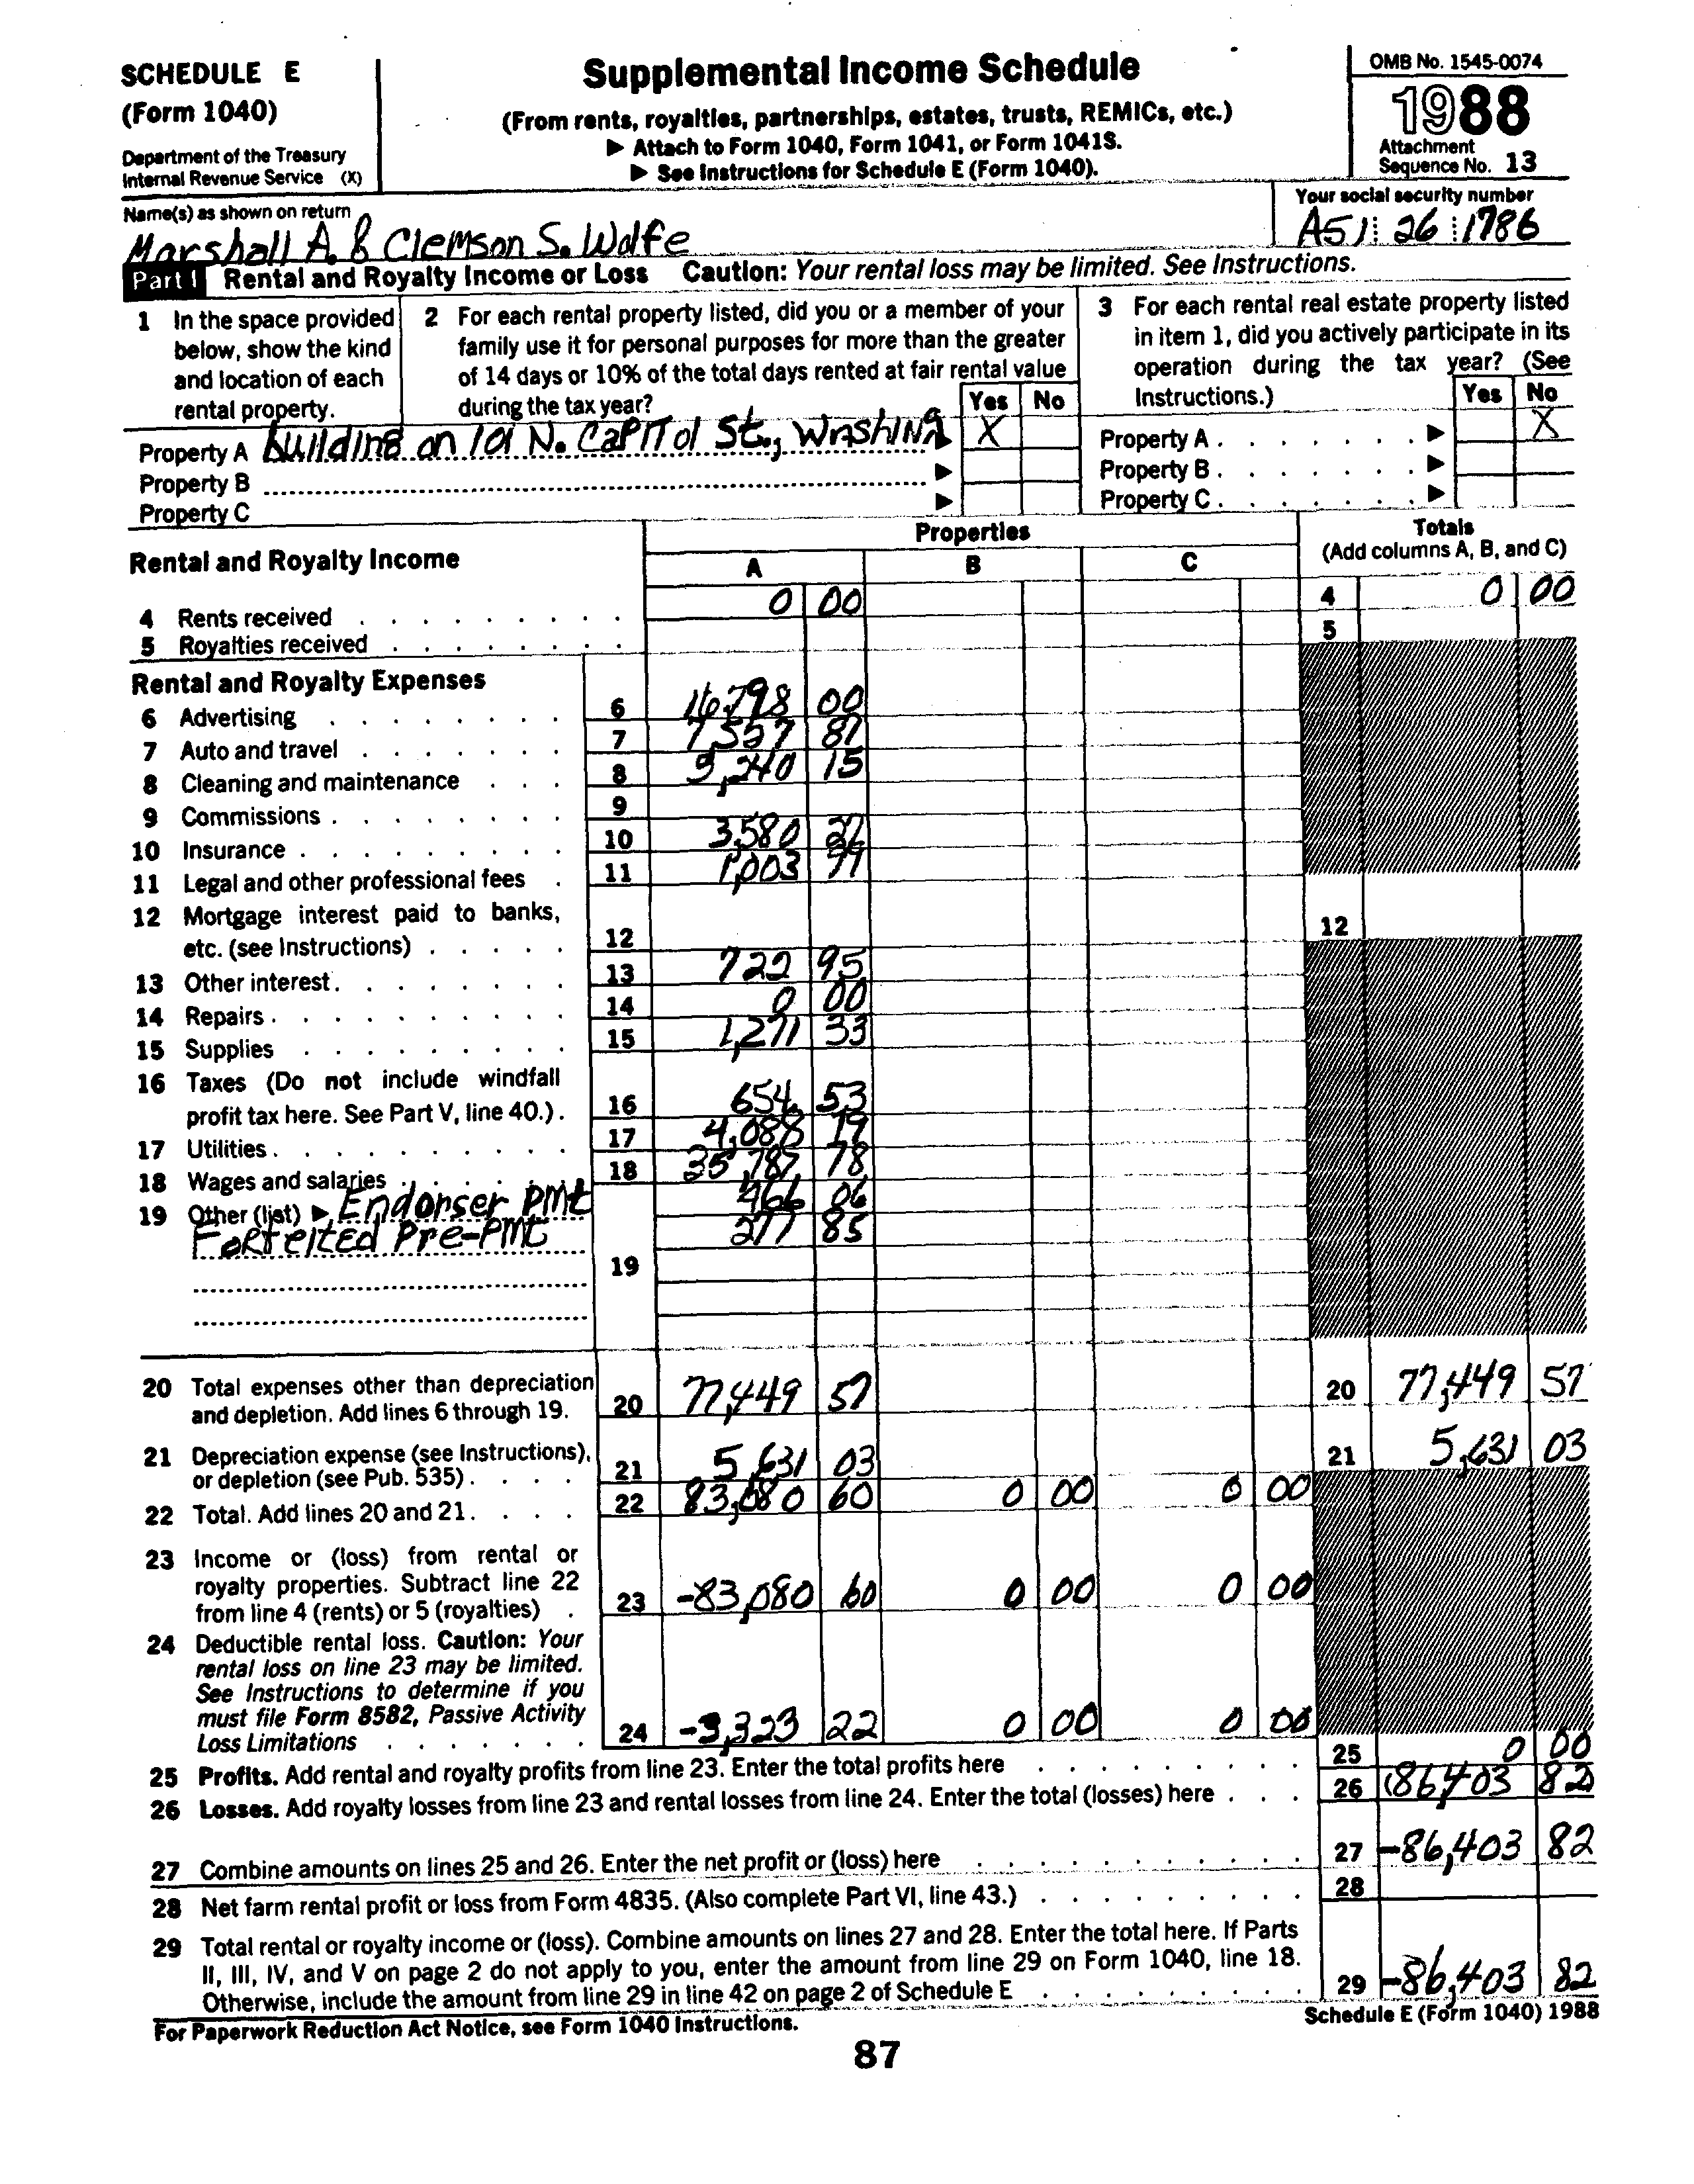 SCHEDULE E
(Form 1040)
Department of the Treasury
Internal Revenue Service (X)
Supplemental Income Schedule
(From rents, royalties, partnerships, estates, trusts, REMICs, etc.)
▶ Attach to Form 1040, Form 1041, or Form 1041S.
▶ See Instructions for Schedule E (Form 1040).
OMB No. 1545-0074
1988
Attachment
Sequence No. 13
Name(s) as shown on return
Marshall A. & Clemson S. Wolfe
Your social security number
A51 26 1786
Part I Rental and Royalty Income or Loss Caution: Your rental loss may be limited. See Instructions.
1 In the space provided
below, show the kind
and location of each
rental property.
2 For each rental property listed, did you or a member of your
family use it for personal purposes for more than the greater
of 14 days or 10% of the total days rented at fair rental value
during the tax year?
Yes No
3 For each rental real estate property listed
in item 1, did you actively participate in its
operation during the tax year? (See
Instructions.)
Yes No
Property A building on 101 N. CaPITol St., WashINg ▶ X
Property B ▶
Property C ▶
Property A . . . . . . . ▶ X
Property B . . . . . . . ▶
Property C . . . . . . . ▶
Rental and Royalty Income
Properties
A B C
Totals
(Add columns A, B, and C)
4 Rents received 0 00 4 0 00
5 Royalties received 5
Rental and Royalty Expenses
6 Advertising 6 16,798 00
7 Auto and travel 7 7,557 87
8 Cleaning and maintenance 8 5,240 15
9 Commissions 9
10 Insurance 10 3,580
11 Legal and other professional fees 11 1,003
12 Mortgage interest paid to banks,
etc. (see Instructions) 12 12
13 Other interest 13 722 95
14 Repairs 14 0 00
15 Supplies 15 1,271 33
16 Taxes (Do not include windfall
profit tax here. See Part V, line 40.) 16 654 53
17 Utilities 17 4,088 19
18 Wages and salaries 18 35,787 78
19 Other (list) ▶ Endorser PMt 466 06
Forfeited Pre-PMt 277 85
19
20 Total expenses other than depreciation
and depletion. Add lines 6 through 19. 20 77,449 57 20 77,449 57
21 Depreciation expense (see Instructions),
or depletion (see Pub. 535) 21 5,631 03 21 5,631 03
22 Total. Add lines 20 and 21 22 83,080 60 0 00 0 00
23 Income or (loss) from rental or
royalty properties. Subtract line 22
from line 4 (rents) or 5 (royalties) 23 -83,080 60 0 00 0 00
24 Deductible rental loss. Caution: Your
rental loss on line 23 may be limited.
See Instructions to determine if you
must file Form 8582, Passive Activity
Loss Limitations 24 -3,323 22 0 00 0 00
25 Profits. Add rental and royalty profits from line 23. Enter the total profits here 25 0 00
26 Losses. Add royalty losses from line 23 and rental losses from line 24. Enter the total (losses) here 26 (86,403 82
27 Combine amounts on lines 25 and 26. Enter the net profit or (loss) here 27 -86,403 82
28 Net farm rental profit or loss from Form 4835. (Also complete Part VI, line 43.) 28
29 Total rental or royalty income or (loss). Combine amounts on lines 27 and 28. Enter the total here. If Parts
II, III, IV, and V on page 2 do not apply to you, enter the amount from line 29 on Form 1040, line 18.
Otherwise, include the amount from line 29 in line 42 on page 2 of Schedule E 29 -86,403 82
For Paperwork Reduction Act Notice, see Form 1040 Instructions.
Schedule E (Form 1040) 1988
87